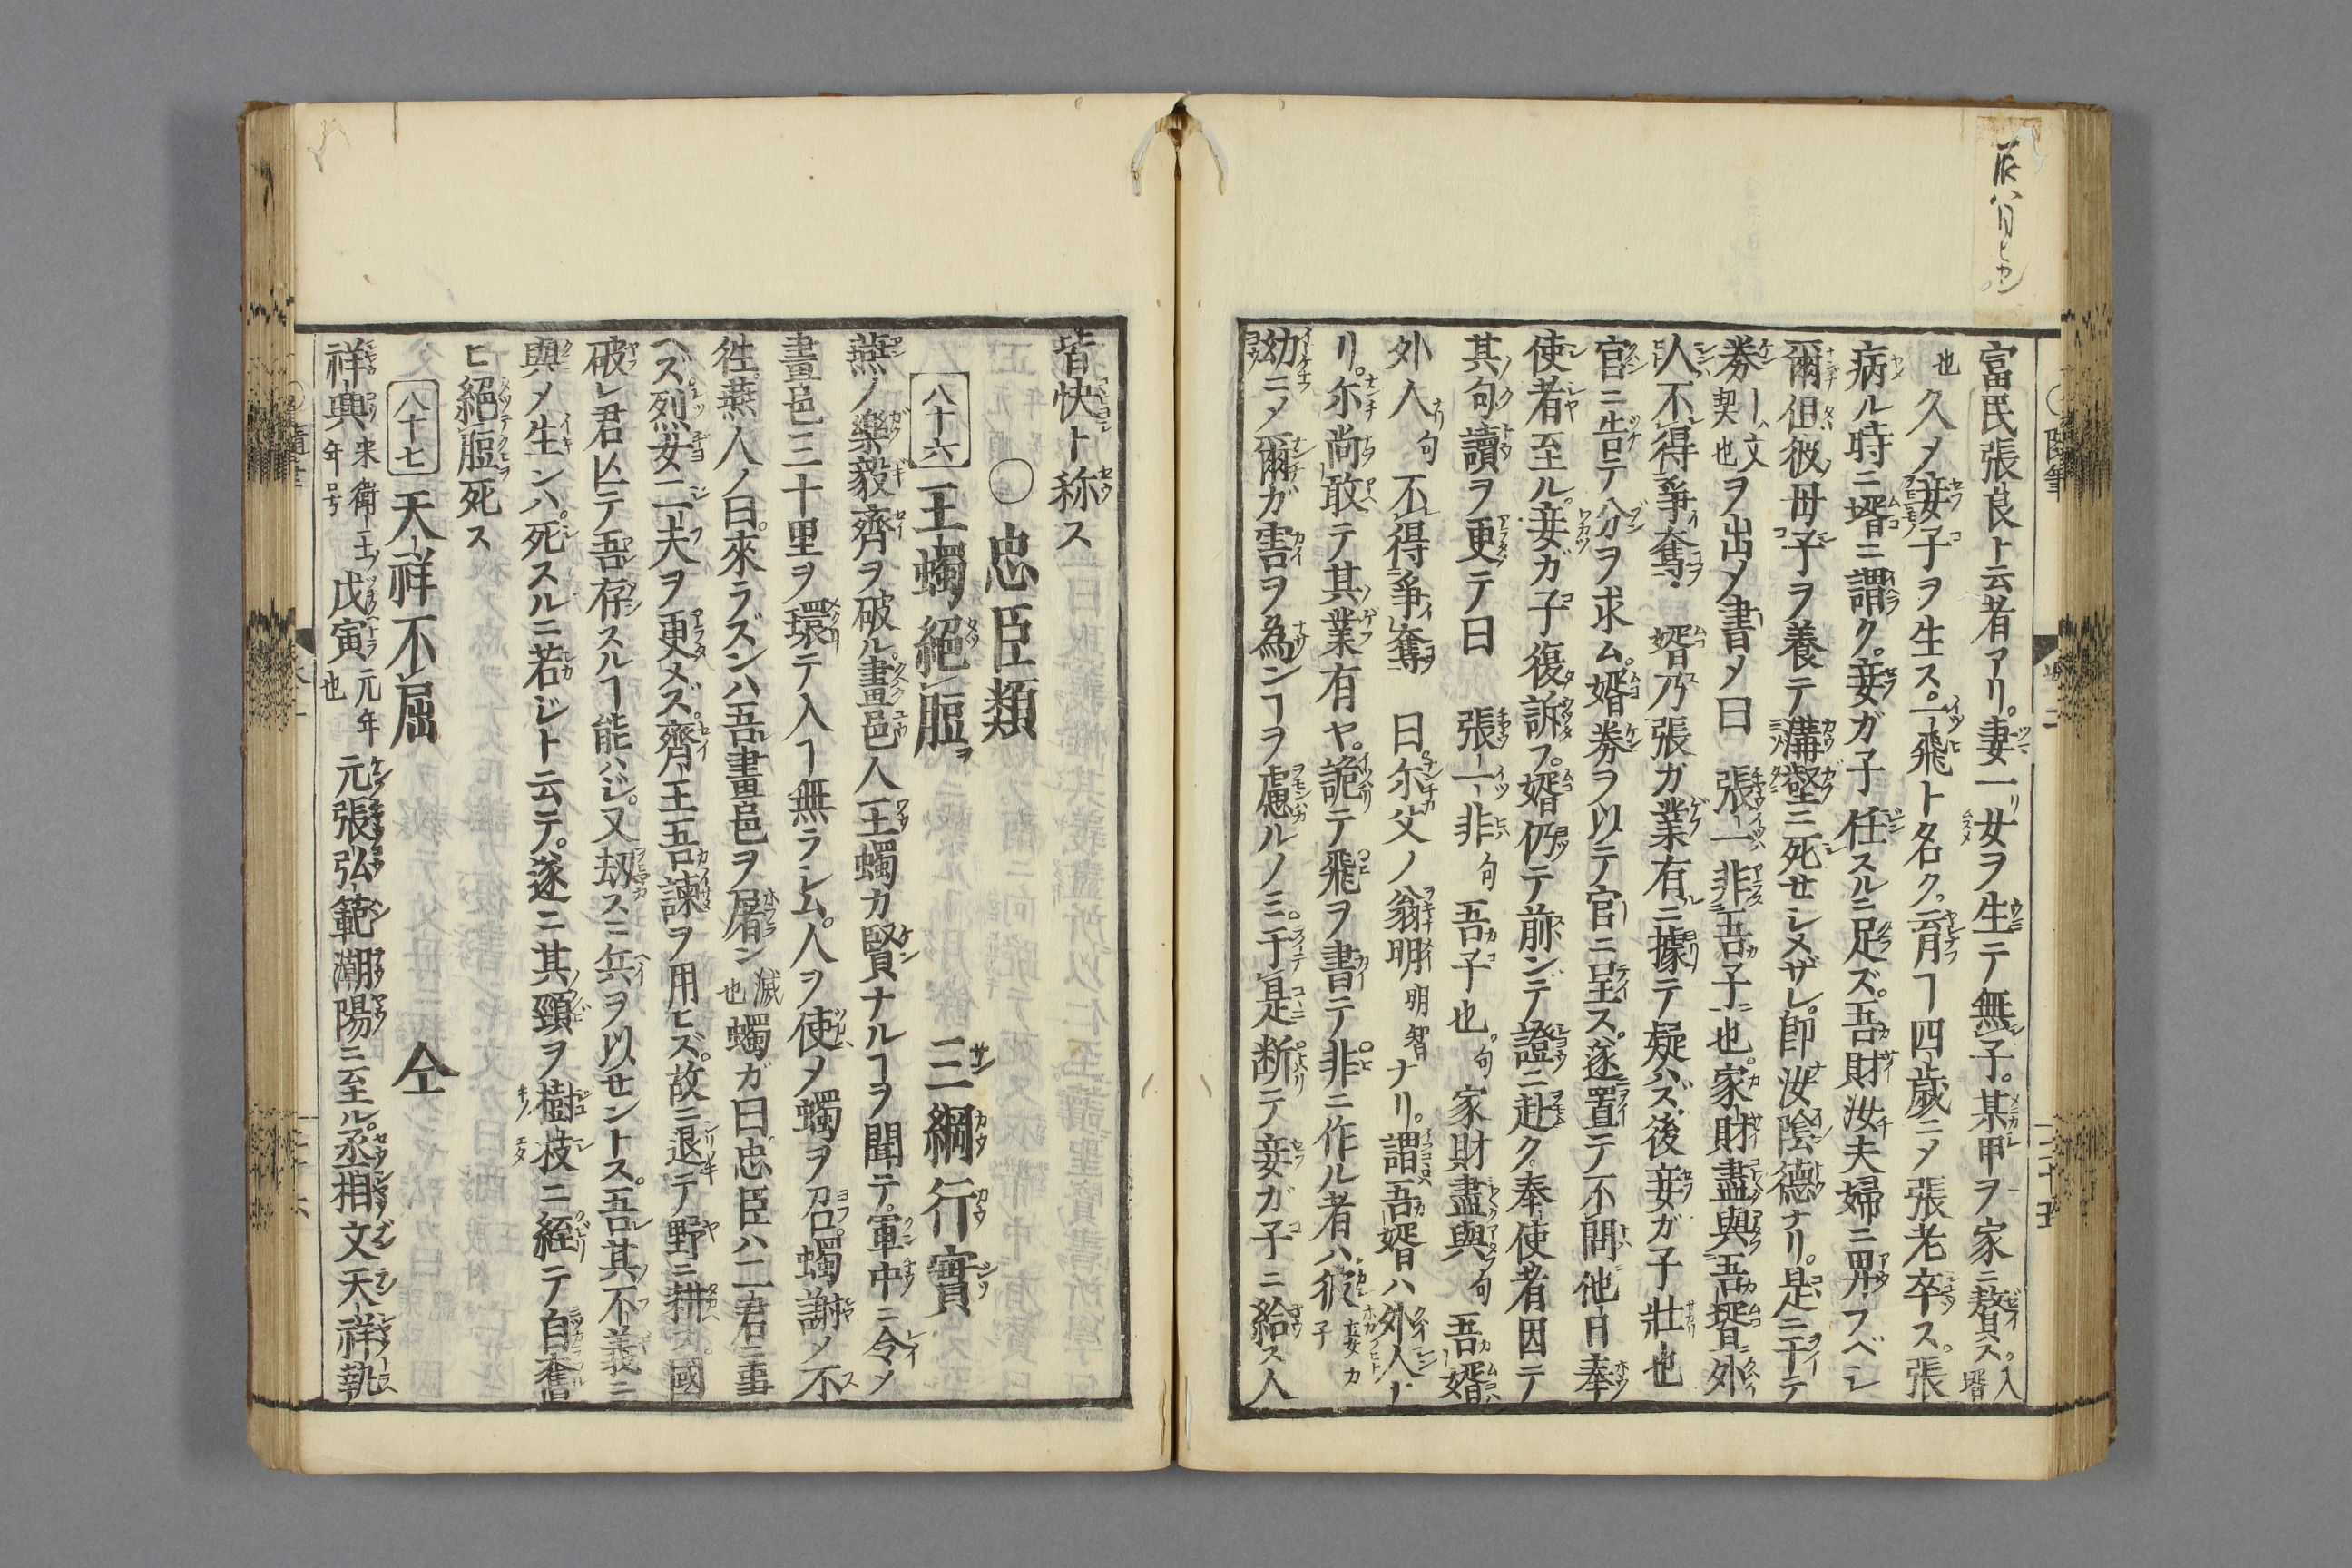 富民張良ト云者アリ。妻一女ヲ生テ無子。某甲ヲ家ニ贅ス。入壻
也久メ妾子ヲ生ス。一飛ト名ク。育ヿ四歳ニメ張老卒ス。張
病ル時ニ壻ニ謂ク。妾ガ子任スルニ足ズ。吾財汝夫婦ニ畀フベシ
爾但彼母子ヲ養テ溝壑ニ死セシメザレ。即汝陰德ナリ。是ニ于テ
券契文也ヲ出メ書メ曰張一非吾子也。家財盡與吾壻外
人不得爭奪。婿乃張ガ業有ニ據テ疑ハズ。後妾ガ子壯也
官ニ告テ分ヲ求ム。婿券ヲ以テ官ニ呈ス。遂置テ不問他日奉
使者至ル。妾ガ子復訴フ。婿仍テ前ンデ證ニ赴ク。奉使者因テ
其句讀ヲ更テ曰張一非句吾子也。句家財盡與句吾婿
外人句不得爭奪曰。尓父ノ翁明明智ナリ。謂吾婿ハ外人ト
リ。尓尚敢テ其業有ヤ。詭テ飛ヲ書テ非ニ作ル者ハ。彼妾カ子
幼ニメ爾ガ害ヲ為ンヿヲ慮ルノミ。于是断テ妾ガ子ニ給ス人
皆快ト称ス
〇忠臣類
八十六王蠋絕脰ヲ 三綱行實
燕ノ樂毅齊ヲ破ル。畫邑人王蠋カ賢ナルヿヲ聞テ。軍中ニ令メ
畫邑三十里ヲ環テ入ヿ無ラシム。人ヲ使メ蠋ヲ召。蠋謝メ不
徃。燕人ノ曰。來ラズンハ吾畫邑ヲ屠ン滅也蠋ガ曰忠臣ハ二君ニ事
ヘズ。烈女二夫ヲ更メズ。齊王吾諫ヲ用ヒズ。故ニ退テ野ニ耕ス。國
破レ君亾テ吾存スルヿ能ハジ。又劫スニ兵ヲ以セントス。吾其不義ニ
與メ生ンハ。死スルニ若ジト云テ。遂ニ其頸ヲ樹枝ニ經テ自奮
ヒ絕脰死ス
八十七天祥不屈 仝
祥興宋衛王年号戊寅元年也元張弘範潮陽ニ至ル。丞相文天祥執